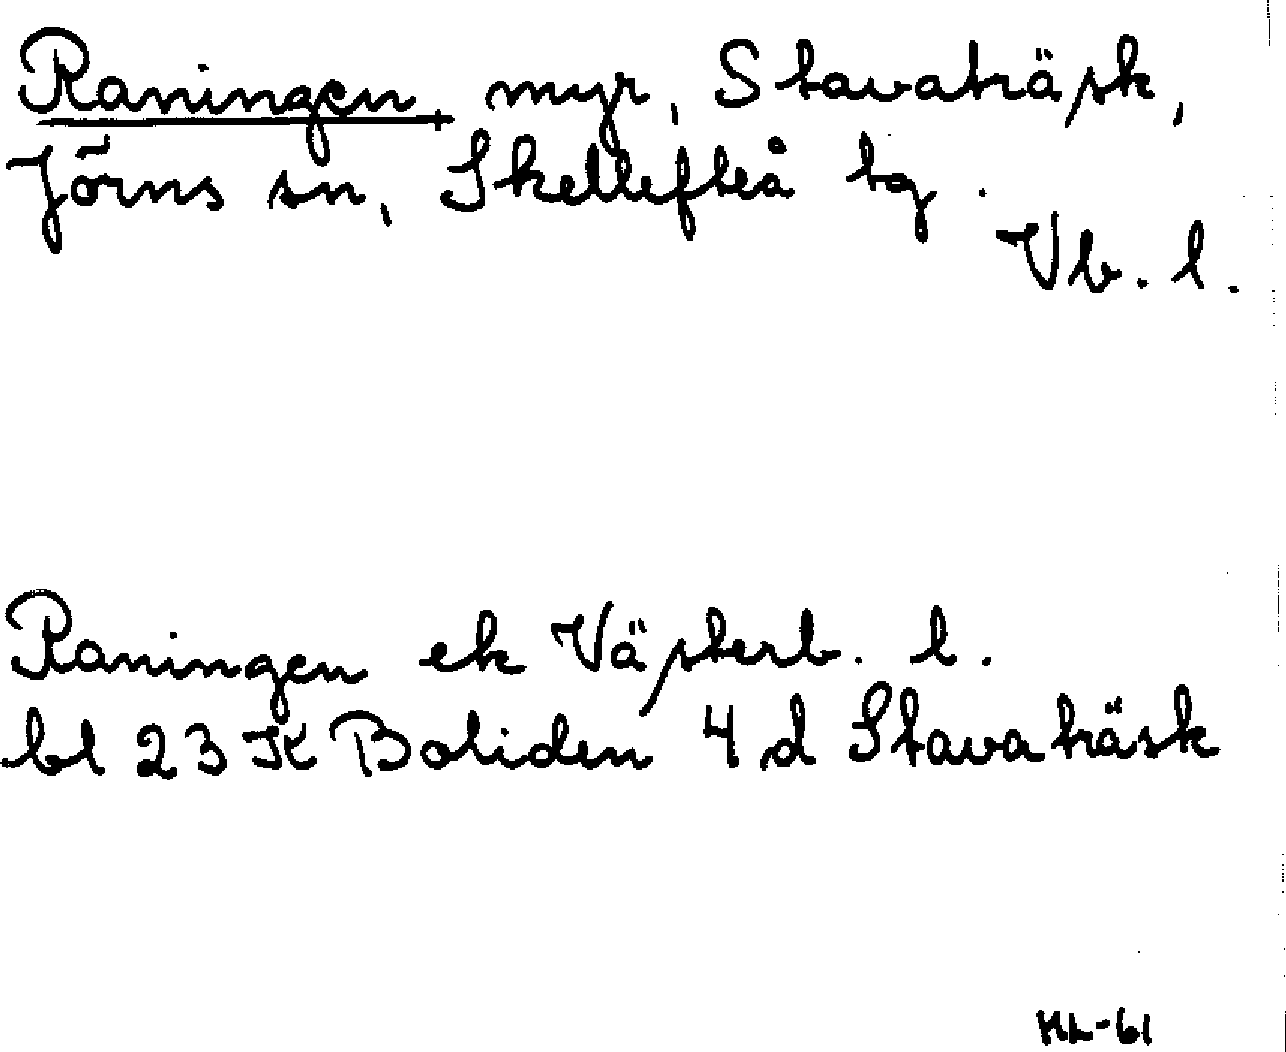 Raningen, myr, Stavaträsk,
Jörns sn, Skellefteå tg.
Vb. l.
Raningen ek Västerb. l.
bl 23 K Boliden 4 d Stavaträsk
ML-61